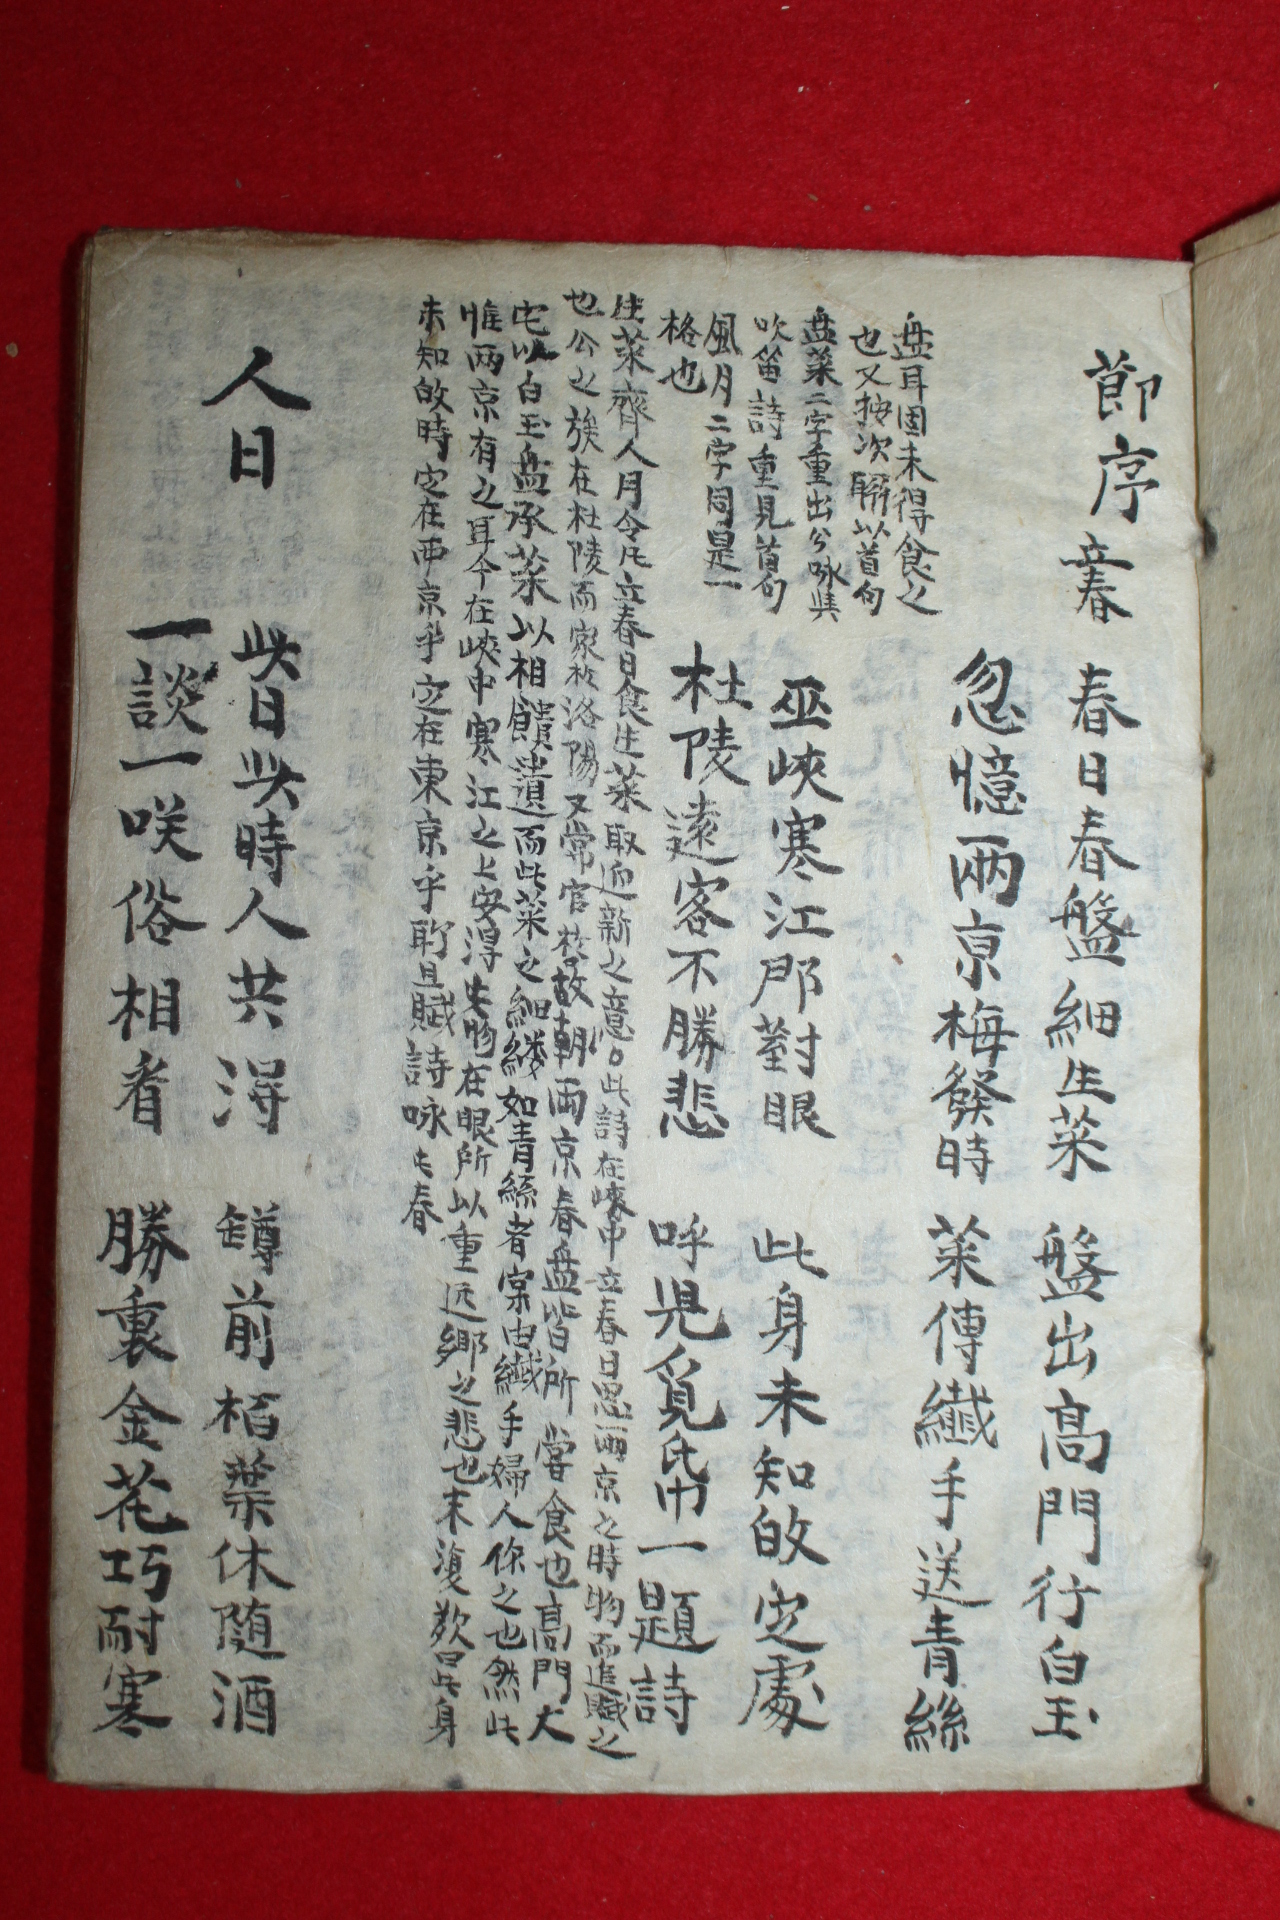 節序 立春 春日春盤細生菜 盤出高門行白玉
忽憶兩京梅發時 菜傳纖手送青絲
盘耳固未得食之
也又按次聯以首句
盘菜二字重出公咏吳
吹笛詩重見首句
風月二字同是一
格也
巫峽寒江那對眼 此身未知故定處
杜陵遠客不勝悲 呼児覓帋一題詩
生菜齊人月令凡立春日食生菜取迎新之意○此詩在峽中立春日思兩京之時物而追賦之
也公之族在杜陵而家於洛陽又常官於故朝兩京春盘皆所嘗食也高門大
宅以白玉盘承菜以相饋遺而此菜之細縷如青絲者寀由纖手婦人作之也然此
惟兩京有之耳今在峽中寒江之上安淂失物在眼所以重远鄉之悲也末復歎曰此身
未知故時定在西京乎定在東京乎聊且賦詩咏此春
人日 此日此時人共淂 罇前栢葉休随酒
一談一咲俗相看 勝裏金花巧耐寒